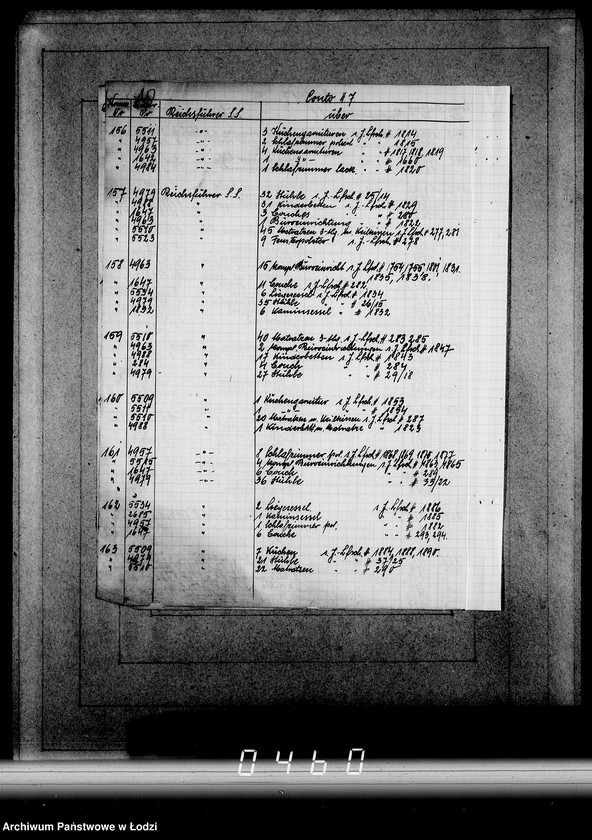 Conto # 7
Komm. Nr
Nr
Reichsführer S.S.
über
156 5511 " 3 Küchengarnituren s. J. Lfsch. # 1814
" 4957 " 2 Schlafzimmer poliert " " 1815
" 4963 " 4 Küchengarnituren " " # 1817, 1818, 1819
" 1642 " 1 " " # 1660
" 4984 " 1 Schlafzimmer lack. " " # 1820
157 4979 Reichsführer S.S. 32 Stühle s. J. Lfsch. # 25/14
" 4988 " 31 Kinderbetten s. J. Lfsch. # 1829
" 1647 " 3 Couches " # 280
" 4963 " 1 Büroeinrichtung " # 1822
" 5510 " 45 Matratzen 3-tlg. m. Keilkissen s. J. Lfsch # 277, 281
" 5523 " 9 Fensterpolster s. J. Lfsch # 278
158 4963 " 15 kompl. Büroeinricht s. J. Lfsch. # 1754/1755, 1801, 1831.
1835, 1838.
" 1647 " 11 Couche s. J. Lfsch # 282.
" 5534 " 6 Liegesessel s. J. Lfsch # 1834
" 4979 " 35 Stühle " " # 26/15
" 1832 " 6 Kaminsessel " # 1832
159 5510 " 40 Matratzen 3-tlg s. J. Lfsch. # 283, 285
" 4963 " 2 kompl. Büroeinrichtungen s. J. Lfsch # 1847
" 4988 " 17 Kinderbetten s. J. Lfsch. # 1843
" 284 " 4 Couch " " # 284
" 4979 " 27 Stühle " " # 29/18
160 5509 " 1 Küchengarnitur s. J. Lfsch. # 1853
" 5511 " 1 " " # 1854
" 5510 " 20 Matratzen m. Keilkissen s. J. Lfsch # 287
" 4988 " 1 Kinderbett m. Matratze " " 1823
161 4957 " 1 Schlafzimmer pol. s. J. Lfsch # 1868, 1869, 1876, 1877
" 5515 " 4 kompl Büroeinrichtungen s. J. Lfsch # 1863, 1865
" 1647 " 6 Couch " " # 289
" 4979 " 36 Stühle " " # 33/22
162 5534 " 2 Liegesessel s. J. Lfsch # 1886
" 2685 " 1 Kaminsessel " " # 1885
" 4957 " 1 Schlafzimmer pol. " " # 1882
" 1647 " 6 Couche " " # 293, 294.
163 5509 " 7 Küchen s. J. Lfsch. # 1884, 1888, 1890.
" 4979 " 21 Stühle " " # 37/25
" 5510 " 22 Matratzen " " # 290
0460
Archiwum Państwowe w Łodzi